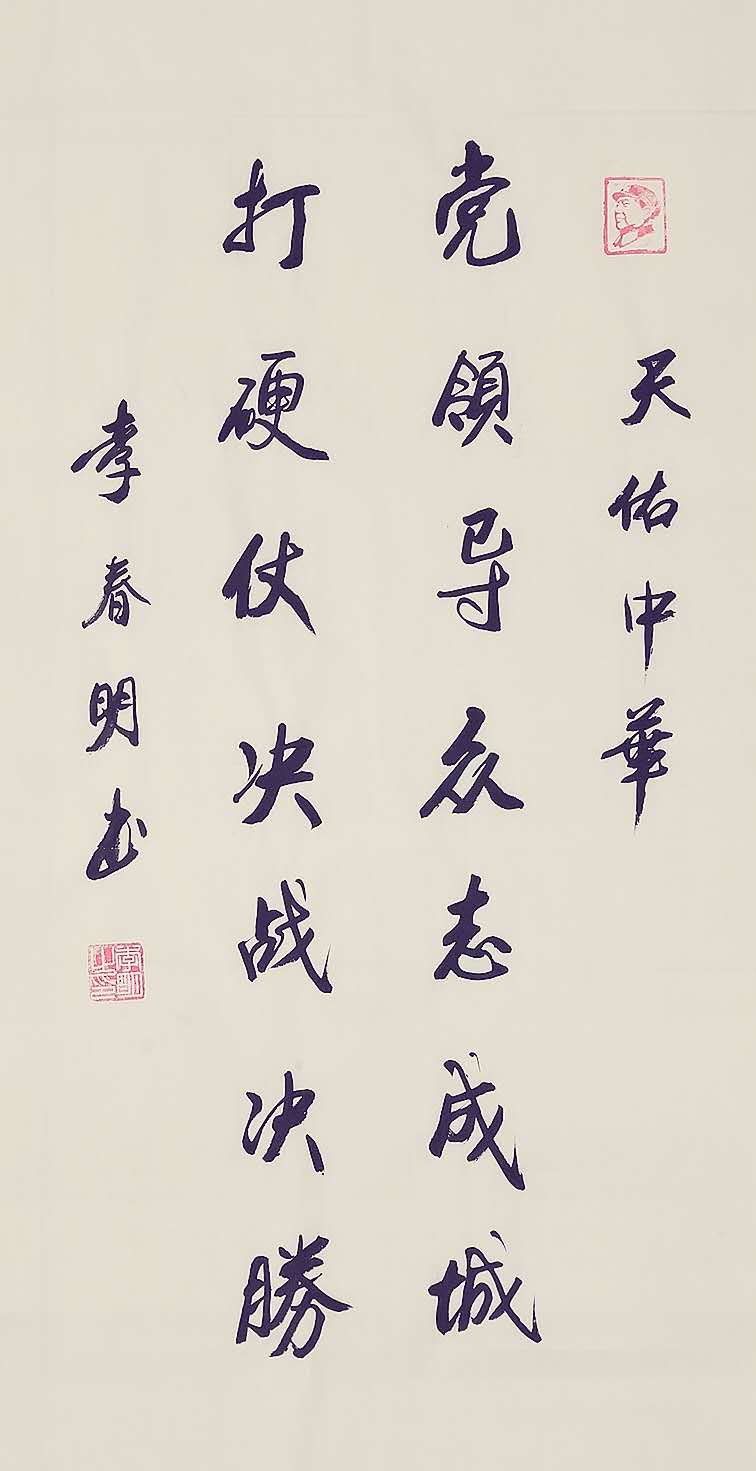 天佑中華
党領导众志成城
打硬仗决战决勝
李春明书